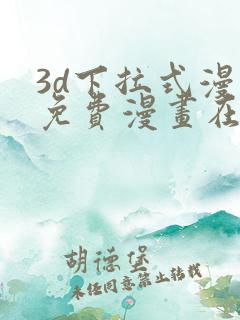 3d下拉式漫
免費漫畫在
胡德堡
未经同意禁止转载